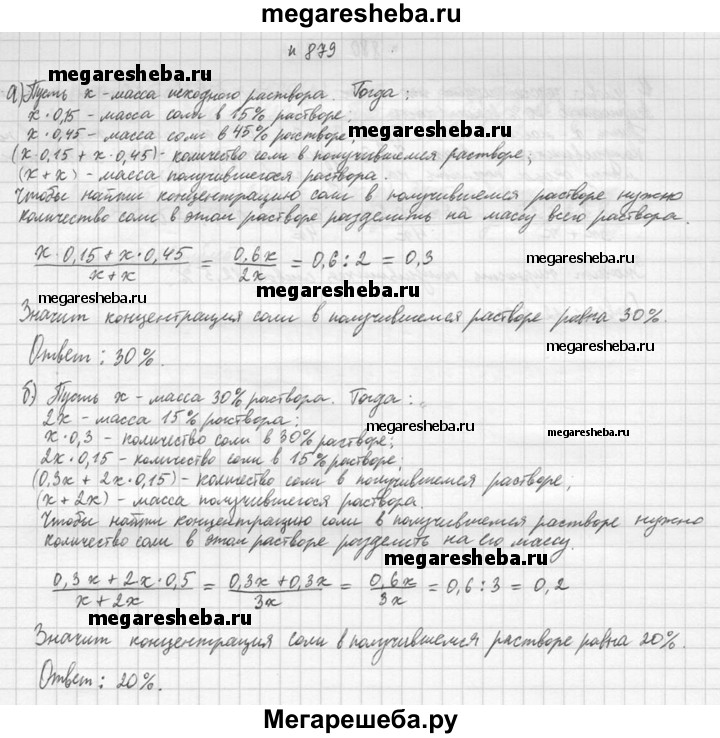 megaresheba.ru
н 879
megaresheba.ru
а) Пусть x - масса исходного раствора. Тогда:
x·0,15 - масса соли в 15% растворе;
x·0,45 - масса соли в 45% растворе;
megaresheba.ru
(x·0,15 + x·0,45) - количество соли в получившемся растворе;
(x + x) - масса получившегося раствора.
Чтобы найти концентрацию соли в получившемся растворе нужно
количество соли в этом растворе разделить на массу всего раствора.
x·0,15 + x·0,45 / x + x = 0,6x / 2x = 0,6 : 2 = 0,3
megaresheba.ru
megaresheba.ru
Значит концентрация соли в получившемся растворе равна 30%.
megaresheba.ru
Ответ: 30%.
б) Пусть x - масса 30% раствора. Тогда:
2x - масса 15% раствора;
megaresheba.ru
megaresheba.ru
x·0,3 - количество соли в 30% растворе;
2x·0,15 - количество соли в 15% растворе;
(0,3x + 2x·0,15) - количество соли в получившемся растворе;
(x + 2x) - масса получившегося раствора.
Чтобы найти концентрацию соли в получившемся растворе нужно
количество соли в этом растворе разделить на его массу.
megaresheba.ru
0,3x + 2x·0,5 / x + 2x = 0,3x + 0,3x / 3x = 0,6x / 3x = 0,6 : 3 = 0,2
megaresheba.ru
Значит концентрация соли в получившемся растворе равна 20%.
megaresheba.ru
Ответ: 20%.
Мегарешеба.ру